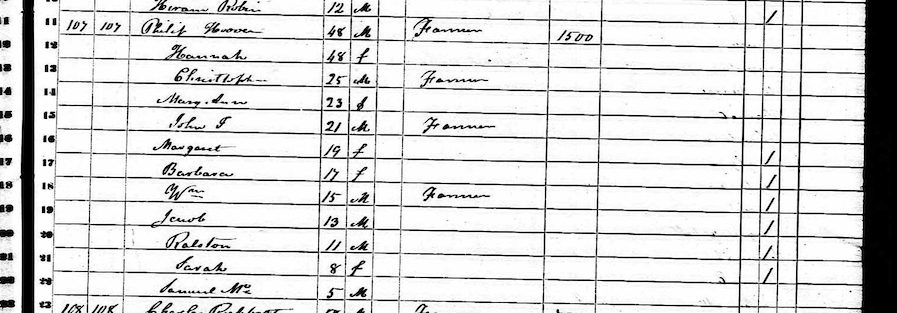 Hiram Robin 12 M
11 107 107 Philip Hoover 48 M Farmer 1500 1
12 Hannah 48 f
13 Christoph 25 M Farmer
14 Mary Ann 23 f
15 John F 21 M Farmer
16 Margaret 19 f
17 Barbara 17 f 1
18 Wm 15 M Farmer 1
19 Jacob 13 M 1
20 Ralston 11 M 1
21 Sarah 8 f 1
22 Samuel Mc 5 M 1
23 108 108 Charles